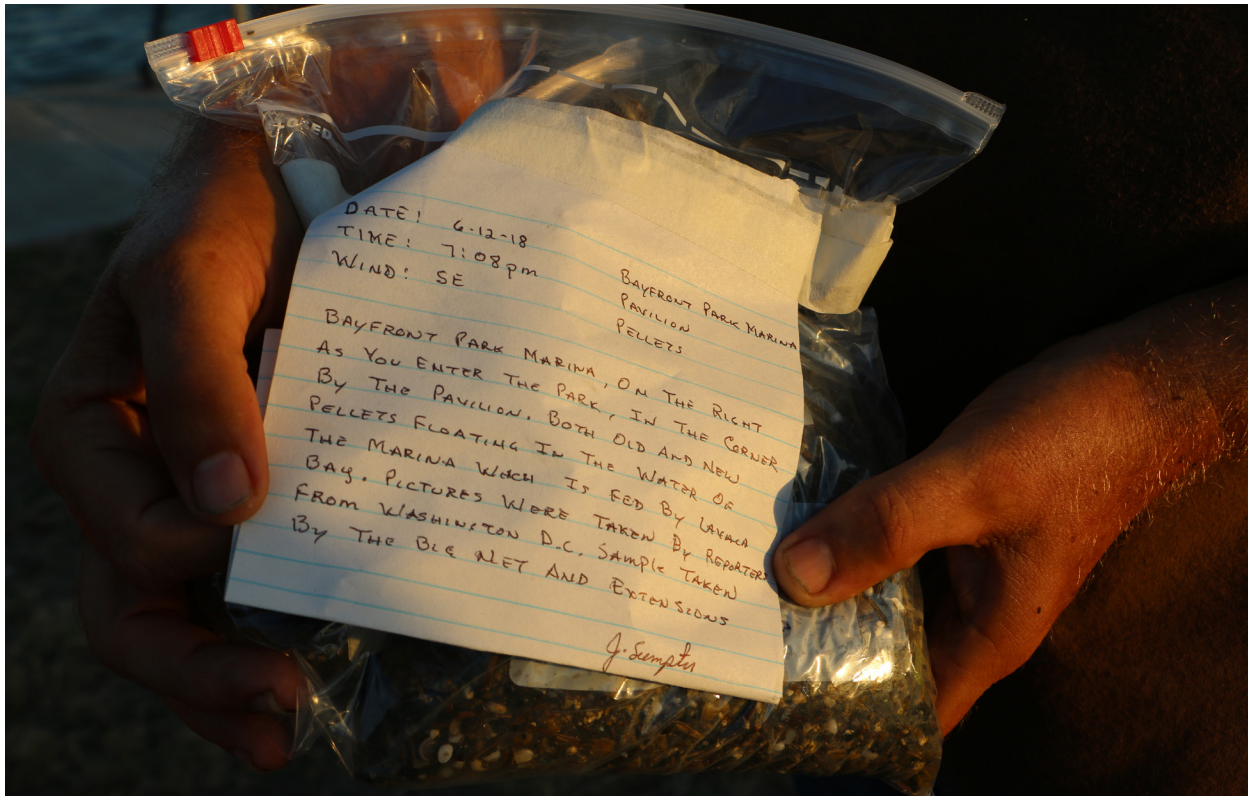 CLOSED
DATE: 6-12-18
TIME: 7:08pm
WIND: SE
BAYFRONT PARK MARINA
PAVILION
PELLETS
BAYFRONT PARK MARINA, ON THE RIGHT
AS YOU ENTER THE PARK, IN THE CORNER
BY THE PAVILION. BOTH OLD AND NEW
PELLETS FLOATING IN THE WATER OF
THE MARINA WHICH IS FED BY LAVACA
BAY. PICTURES WERE TAKEN BY REPORTERS
FROM WASHINGTON D.C. SAMPLE TAKEN
BY THE BIG NET AND EXTENSIONS
J. Sumpter